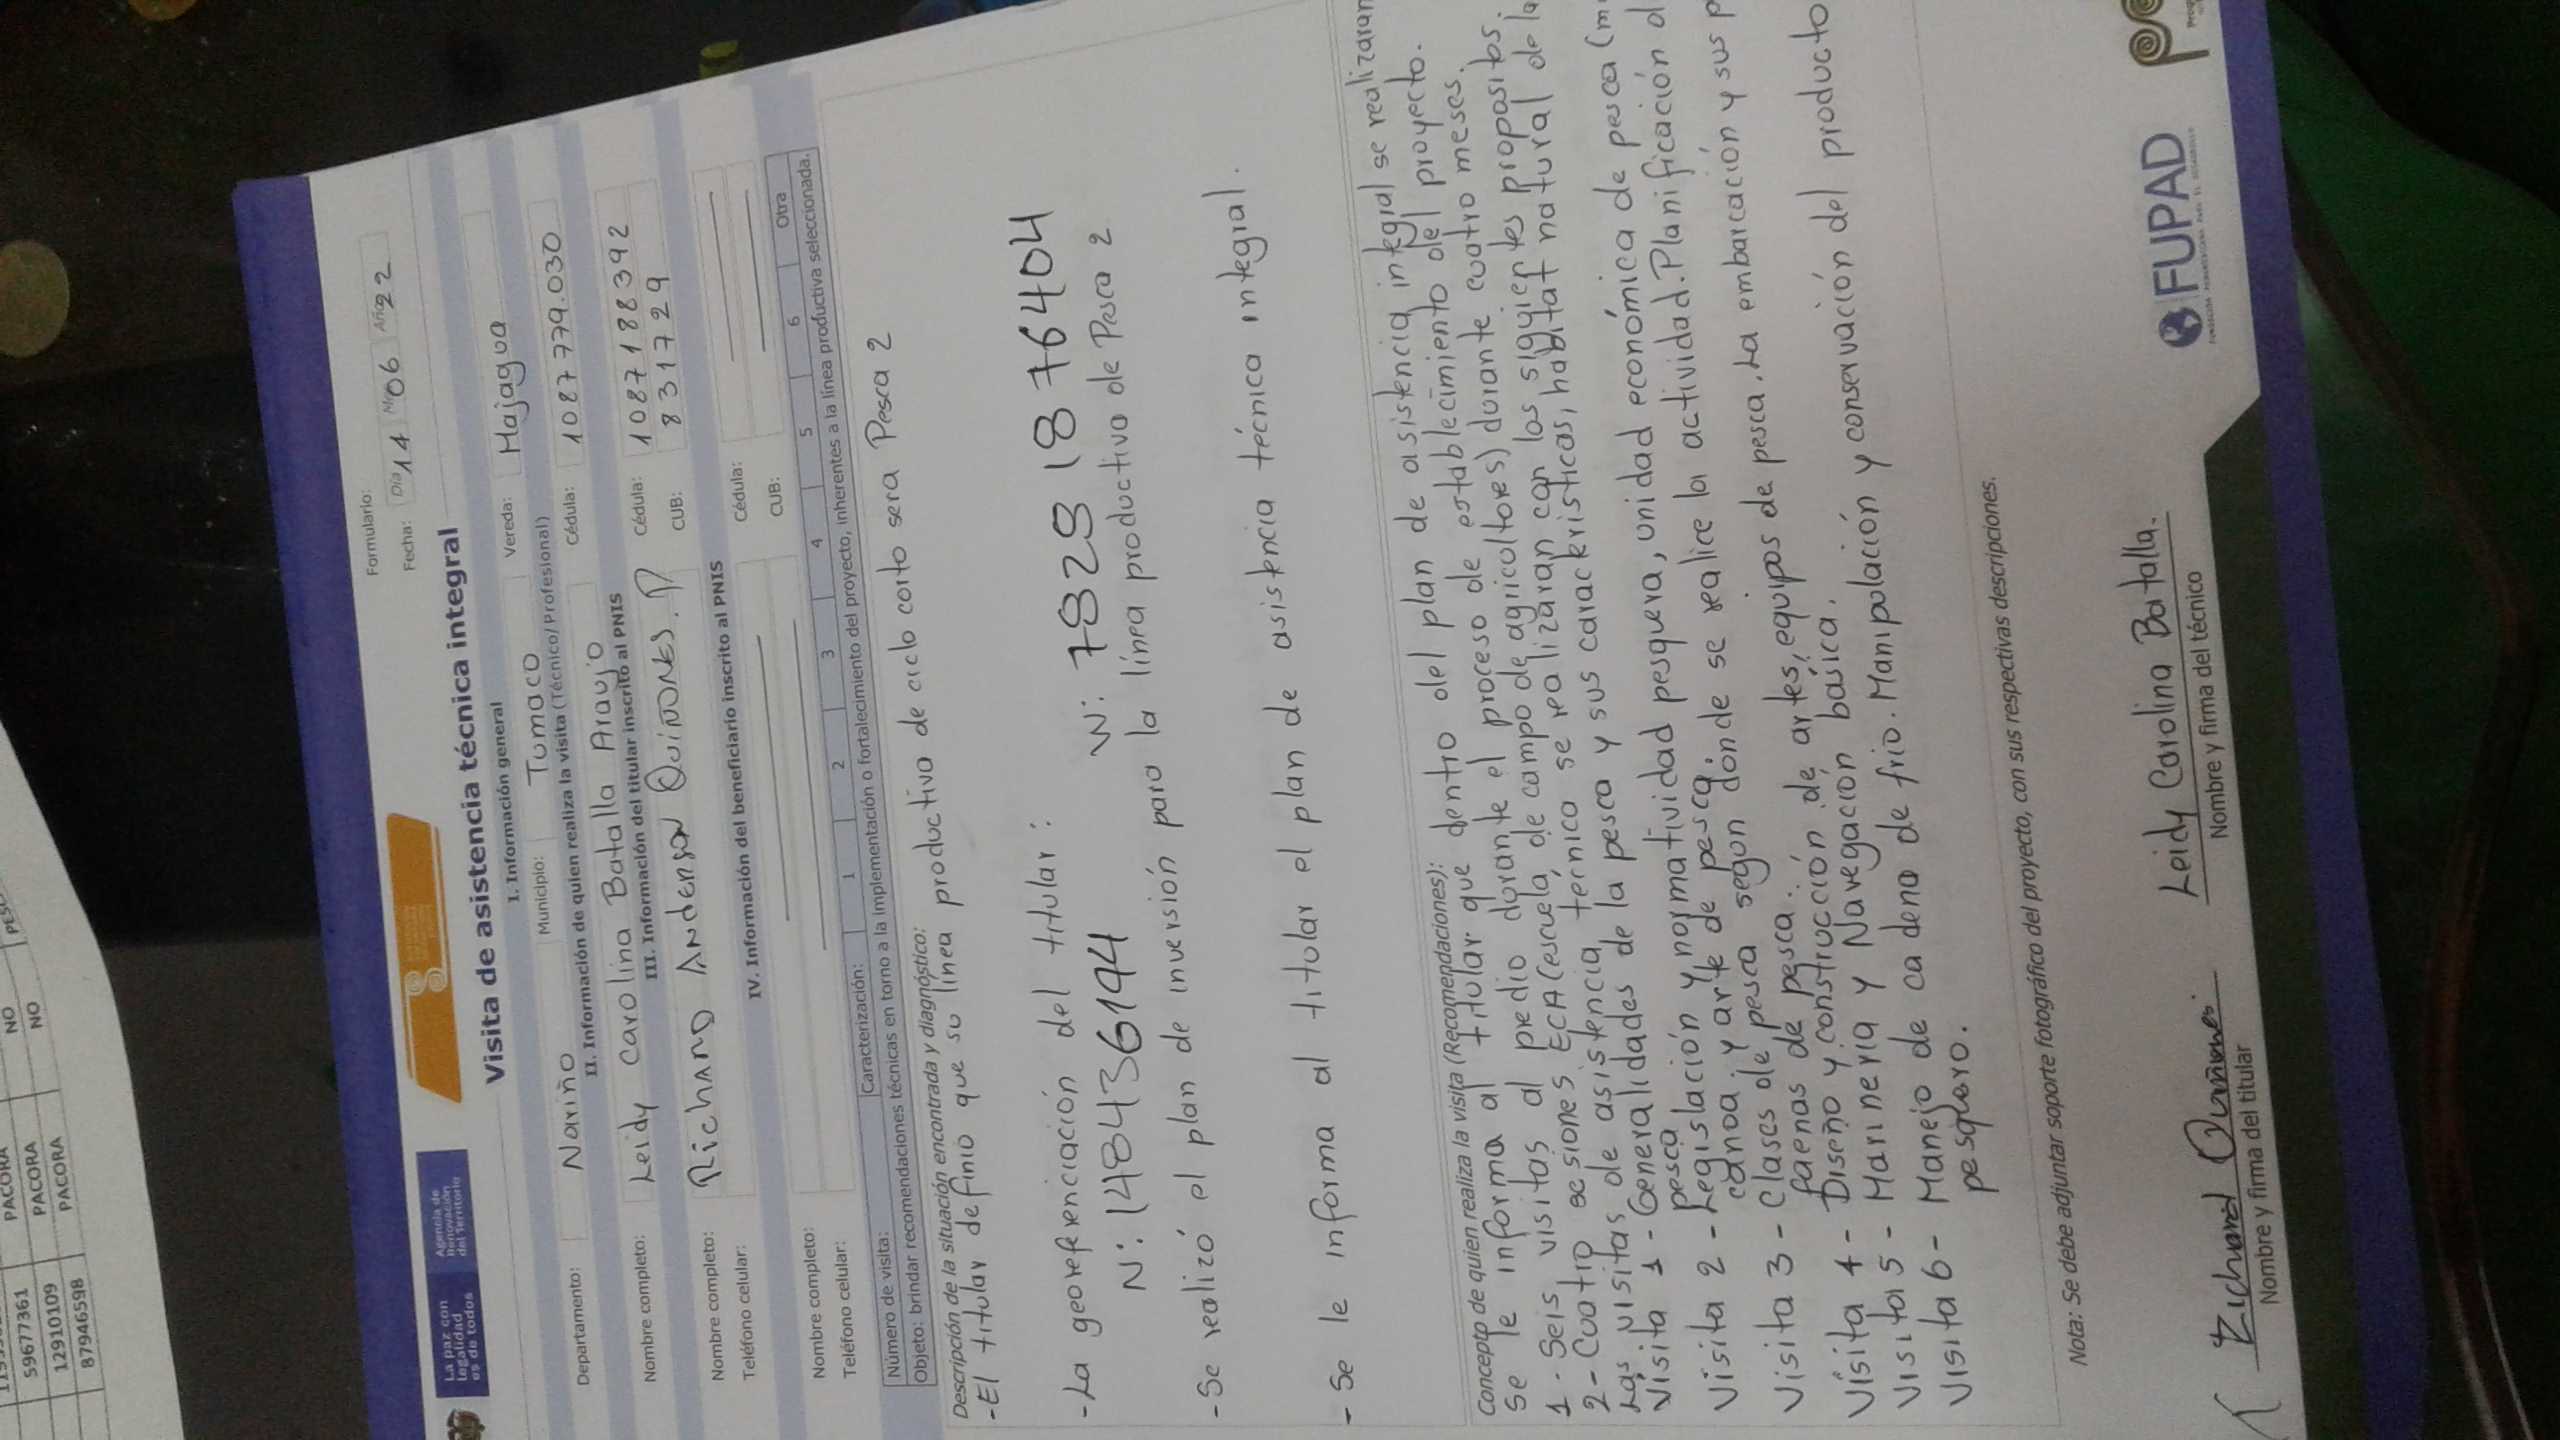 PACORA NO
59677361 PACORA NO
12910109 PACORA
87946598
La paz con
legalidad
es de todos
Agencia de
Renovación
del Territorio
Formulario:
Fecha: Día 14 Mes 06 Año 22
Visita de asistencia técnica integral
I. Información general
Departamento: Nariño Municipio: Tumaco Vereda: Majagua
II. Información de quien realiza la visita (Técnico/Profesional)
Nombre completo: Leidy Carolina Batalla Araujo Cédula: 1087779.030
III. Información del titular inscrito al PNIS
Nombre completo: Richard Anderson Quiñones. P Cédula: 1087188392
Teléfono celular: CUB: 831729
IV. Información del beneficiario inscrito al PNIS
Nombre completo: Cédula:
Teléfono celular: CUB:
Número de visita: Caracterización: 1 2 3 4 5 6 Otra
Objeto: brindar recomendaciones técnicas en torno a la implementación o fortalecimiento del proyecto, inherentes a la línea productiva seleccionada.
Descripción de la situación encontrada y diagnóstico:
- El titular definio que su linea productiva de ciclo corto sera Pesca 2
- La georeferenciación del titular:
N: 148436194 W: 7829 1876404
- Se realizó el plan de inversión para la línea productiva de Pesca 2
- Se le informa al titular el plan de asistencia técnica integral.
Concepto de quien realiza la visita (Recomendaciones):
Se le informa al titular que dentro del plan de asistencia integral se realizaran
1 - Seis visitas al predio durante el proceso de establecimiento del proyecto.
2 - Cuatro sesiones ECA (escuela de campo de agricultores) durante cuatro meses.
Las visitas de asistencia técnica se realizaran con los siguientes propositos.
Visita 1 - Generalidades de la pesca y sus caracteristicas, habitat natural de la
pesca.
Visita 2 - Legislación y normatividad pesquera, unidad económica de pesca (m
canoa y arte de pesca.
Visita 3 - Clases de pesca segun donde se realice la actividad. Planificación d
faenas de pesca.
Visita 4 - Diseño y construcción de artes, equipos de pesca. La embarcación y sus p
Visita 5 - Marineria y Navegación basica.
Visita 6 - Manejo de cadena de frio. Manipulación y conservación del producto
pesquero.
Nota: Se debe adjuntar soporte fotográfico del proyecto, con sus respectivas descripciones.
Richard Quiñones. Leidy Carolina Batalla.
Nombre y firma del titular Nombre y firma del técnico
FUPAD